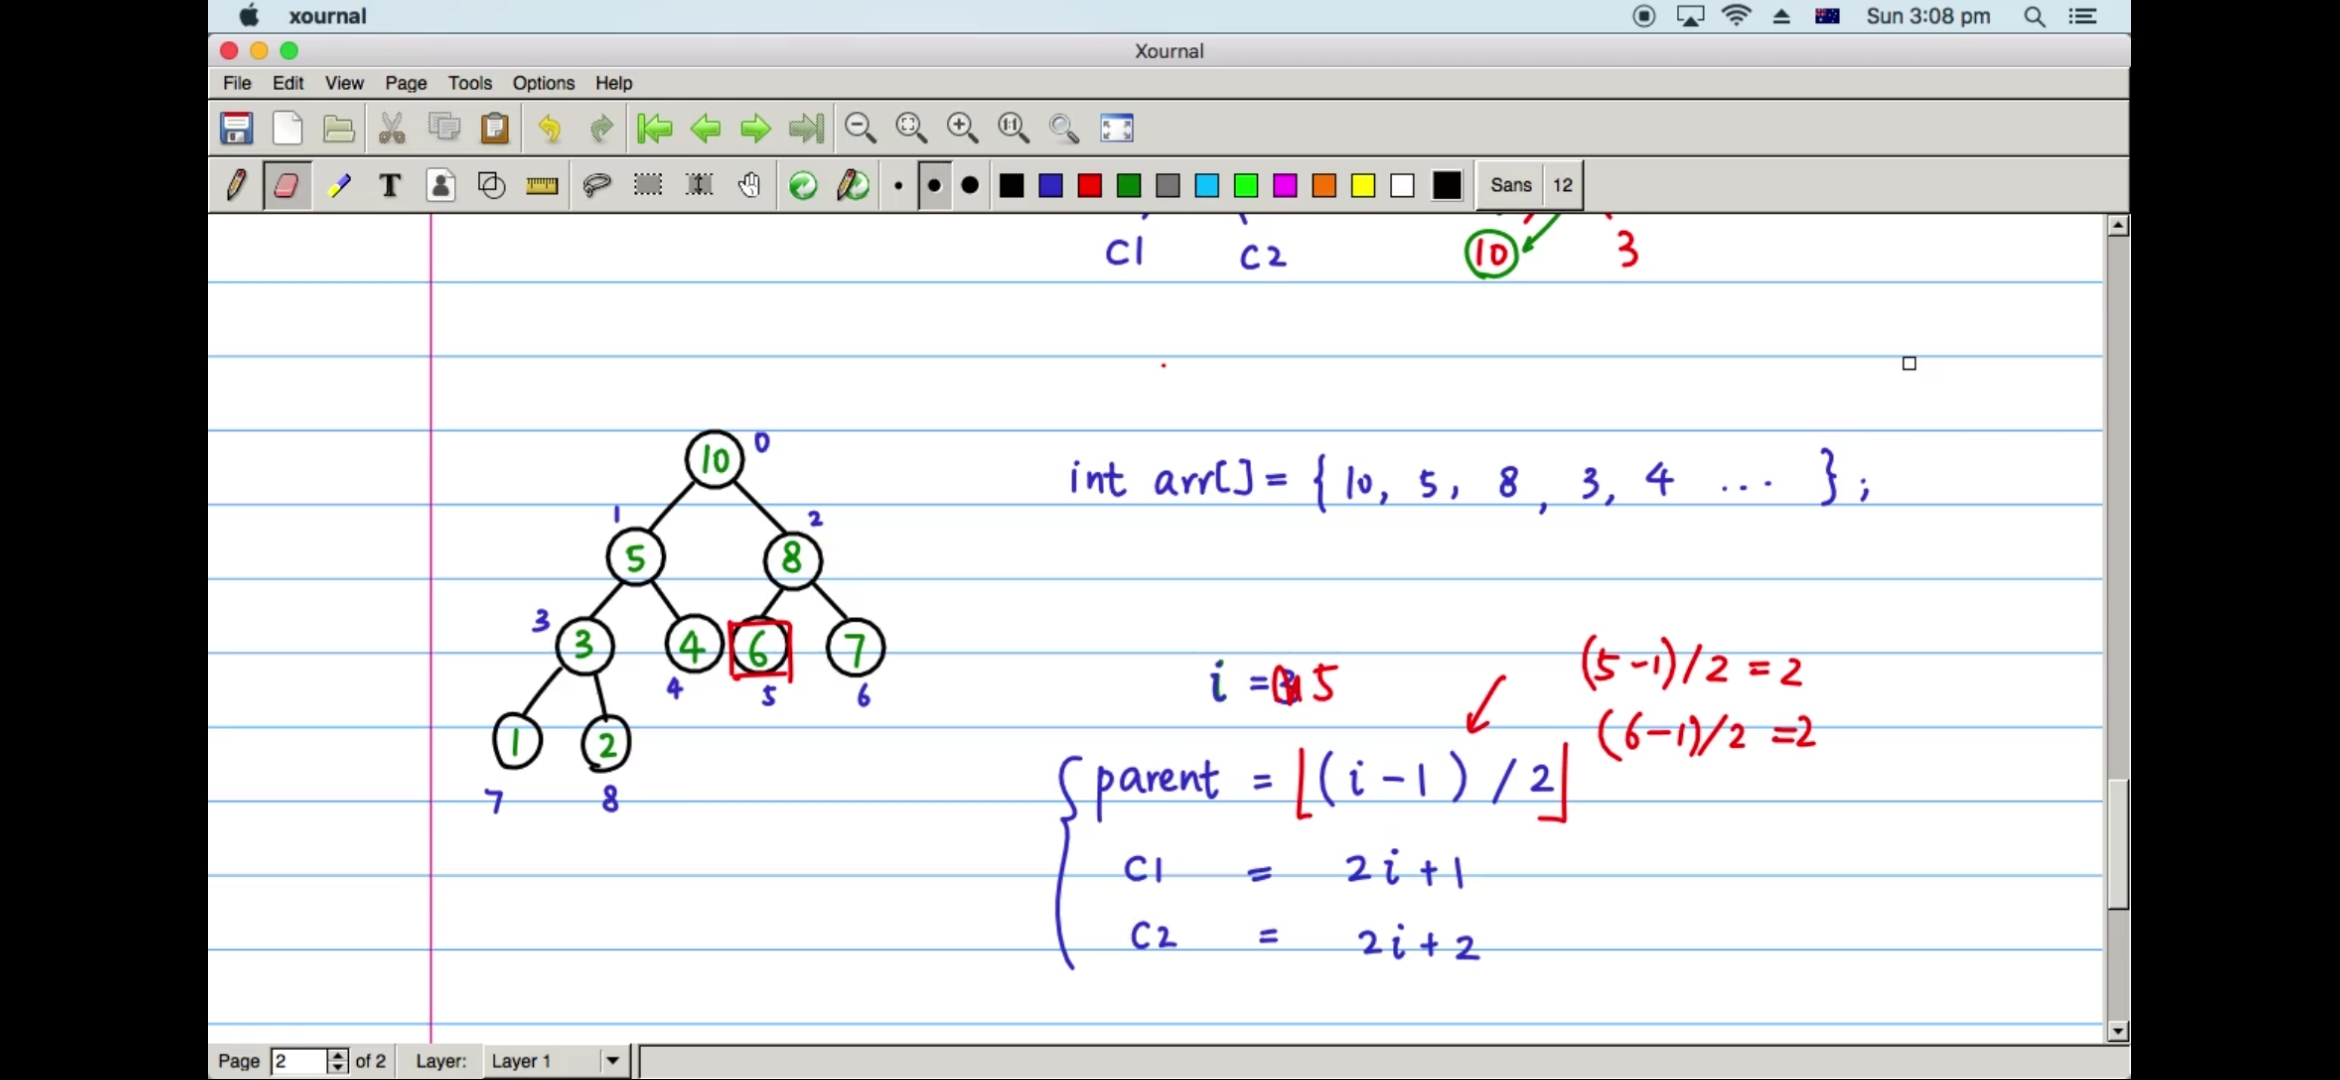 xournal
Sun 3:08 pm
Xournal
File Edit View Page Tools Options Help
T Sans 12
C1 C2 10 3
10 0
int arr[] = { 10, 5, 8, 3, 4 ... };
1 2
5 8
3 3 4 6 7
4 5 6
i = 5
(5-1)/2 = 2
(6-1)/2 = 2
1 2
7 8
parent = ⌊(i-1)/2⌋
C1 = 2i+1
C2 = 2i+2
Page 2 of 2 Layer: Layer 1